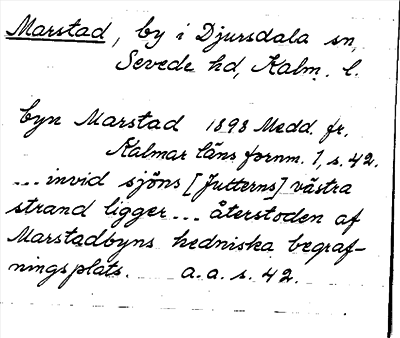 Marstad, by i Djursdala sn,
Sevede hd, Kalm. l.
byn Marstad 1898 Medd. fr.
Kalmar läns fornm. 1, s. 42.
... invid sjöns [Jutterns] västra
strand ligger ... återstoden af
Marstadbyns hedniska begraf-
ningsplats. a. a. s. 42.